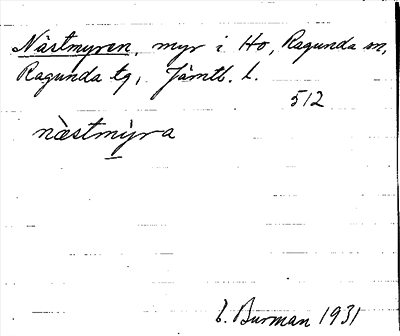 Nästmyren, myr i Ho, Ragunda sn,
Ragunda tg, Jämtl. l.
512
næstmỳra
E. Burman 1931